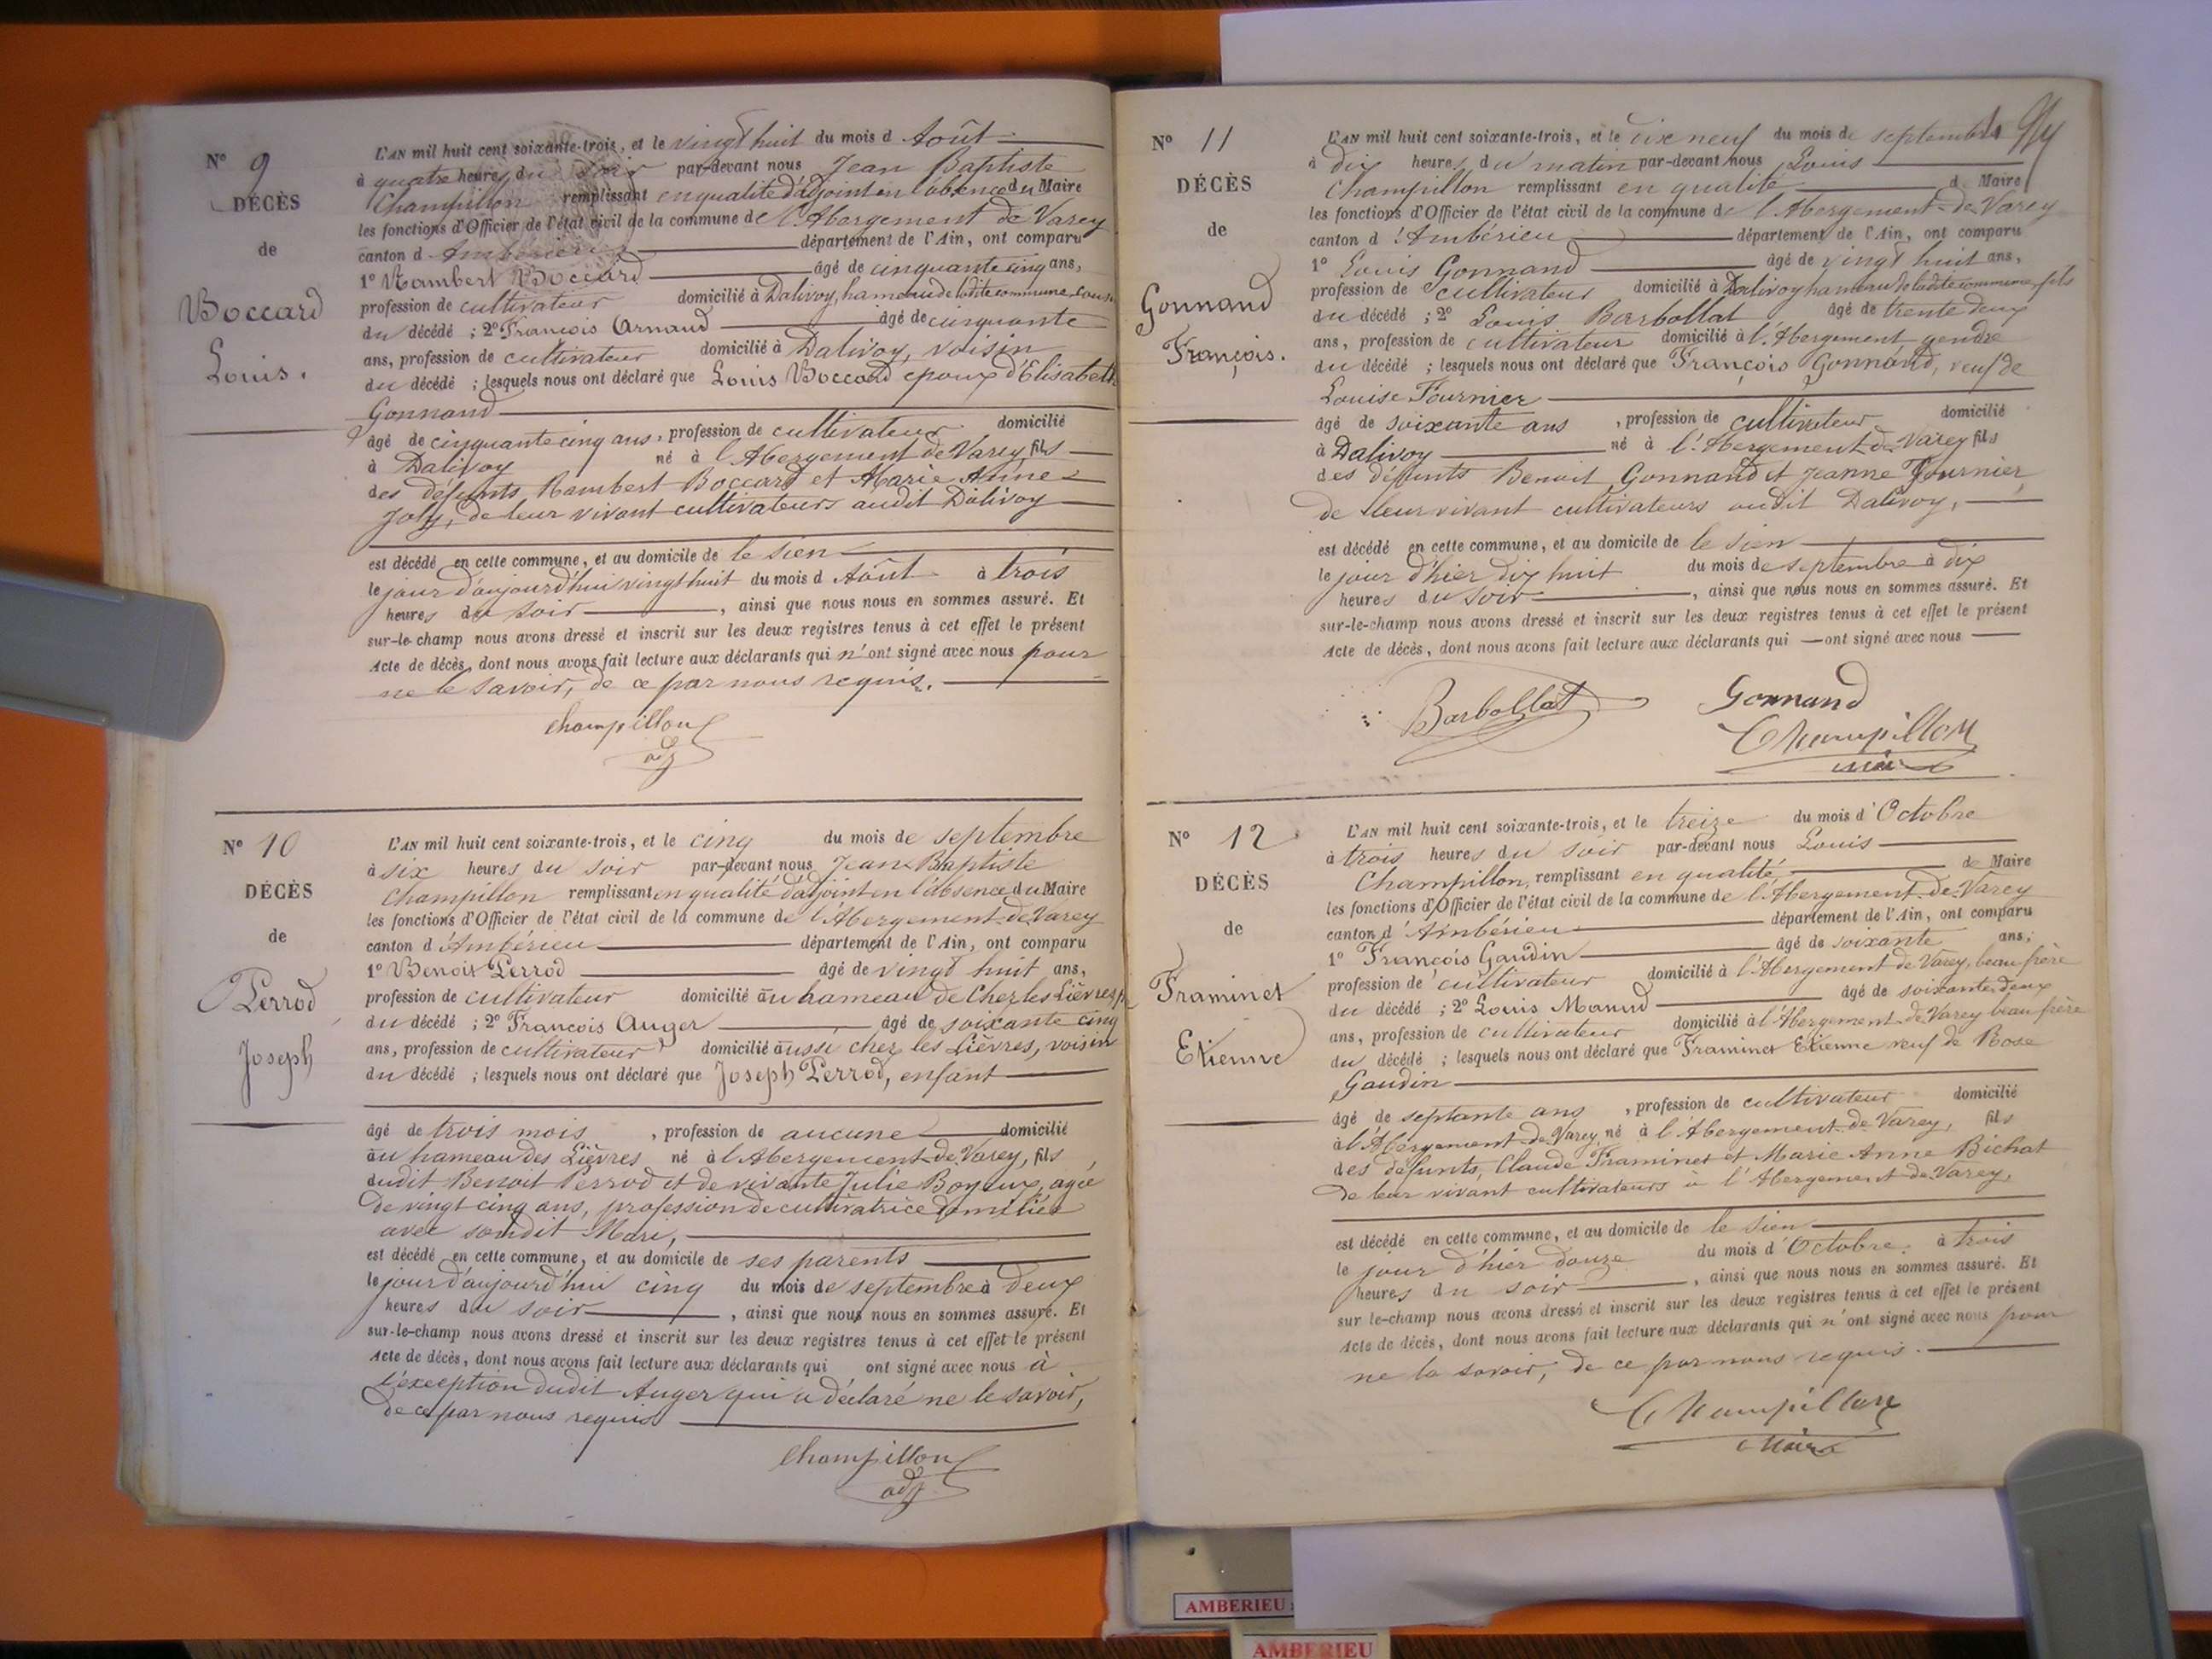 N° 9
DÉCÈS
de
Boccard
Louis.
L'AN mil huit cent soixante-trois, et le vingt huit du mois d Août
à quatre heures du soir par-devant nous Jean Baptiste
Champillon remplissant en qualité d'adjoint en l'absence du Maire
les fonctions d'Officier de l'état civil de la commune de l'Abergement de Varey
canton d'Ambérieu département de l'Ain, ont comparu
1° Rambert Boccard âgé de cinquante cinq ans,
profession de cultivateur domicilié à Dalivoy, hameau de ladite commune,
du décédé ; 2° François Arnaud âgé de cinquante
ans, profession de cultivateur domicilié à Dalivoy, voisin
du décédé ; lesquels nous ont déclaré que Louis Boccard époux d'Elisabeth
Gonnand
âgé de cinquante cinq ans, profession de cultivateur domicilié
à Dalivoy né à l'Abergement de Varey, fils
des défunts Rambert Boccard et Marie Anne
Joly, de leur vivant cultivateurs audit Dalivoy
est décédé en cette commune, et au domicile de le sien
le jour d'aujourd'hui vingt huit du mois d Août à trois
heures du soir, ainsi que nous nous en sommes assuré. Et
sur-le-champ nous avons dressé et inscrit sur les deux registres tenus à cet effet le présent
Acte de décès, dont nous avons fait lecture aux déclarants qui n'ont signé avec nous pour
ne le savoir, de ce par nous requis.
Champillon
adj
N° 10
DÉCÈS
de
Perrod
Joseph
L'AN mil huit cent soixante-trois, et le cinq du mois de septembre
à six heures du soir par-devant nous Jean Baptiste
Champillon remplissant en qualité d'adjoint en l'absence du Maire
les fonctions d'Officier de l'état civil de la commune de l'Abergement-de-Varey
canton d'Ambérieu département de l'Ain, ont comparu
1° Benoit Perrod âgé de vingt huit ans,
profession de cultivateur domicilié au hameau de Chez les Lièvres,
du décédé ; 2° François Auger âgé de soixante cinq
ans, profession de cultivateur domicilié aussi chez les Lièvres, voisin
du décédé ; lesquels nous ont déclaré que Joseph Perrod, enfant
âgé de trois mois, profession de aucune domicilié
au hameau des Lièvres né à l'Abergement-de-Varey, fils
dudit Benoit Perrod et de vivante Julie Boyeux, agée
de vingt cinq ans, profession de cultivatrice domiliée
avec sondit Mari,
est décédé en cette commune, et au domicile de ses parents
le jour d'aujourd'hui cinq du mois de septembre à deux
heures du soir, ainsi que nous nous en sommes assuré. Et
sur-le-champ nous avons dressé et inscrit sur les deux registres tenus à cet effet le présent
Acte de décès, dont nous avons fait lecture aux déclarants qui ont signé avec nous à
l'exception dudit Auger qui a déclaré ne le savoir,
de ce par nous requis
Champillon
adj
N° 11
DÉCÈS
de
Gonnand
François.
L'AN mil huit cent soixante-trois, et le dix neuf du mois de septembre
à dix heures du matin par-devant nous Louis
Champillon remplissant en qualité de Maire
les fonctions d'Officier de l'état civil de la commune de l'Abergement-de-Varey
canton d'Ambérieu département de l'Ain, ont comparu
1° Louis Gonnand âgé de vingt huit ans,
profession de cultivateur domicilié à Dalivoy hameau de ladite commune fils
du décédé ; 2° Louis Barbollat âgé de trente deux
ans, profession de cultivateur domicilié à l'Abergement gendre
du décédé ; lesquels nous ont déclaré que François Gonnand, veuf de
Louise Fournier
âgé de soixante ans, profession de cultivateur domicilié
à Dalivoy né à l'Abergement-de-Varey fils
des défunts Benoit Gonnand et Jeanne Fournier,
de leur vivant cultivateurs audit Dalivoy,
est décédé en cette commune, et au domicile de le sien
le jour d'hier dix huit du mois de septembre à dix
heures du soir, ainsi que nous nous en sommes assuré. Et
sur-le-champ nous avons dressé et inscrit sur les deux registres tenus à cet effet le présent
Acte de décès, dont nous avons fait lecture aux déclarants qui — ont signé avec nous —
Barbollat Gonnand
Champillon
N° 12
DÉCÈS
de
Framinet
Etienne
L'AN mil huit cent soixante-trois, et le treize du mois d'Octobre
à trois heures du soir par-devant nous Louis
Champillon, remplissant en qualité de Maire
les fonctions d'Officier de l'état civil de la commune de l'Abergement-de-Varey
canton d'Ambérieu département de l'Ain, ont comparu
1° François Gaudin âgé de soixante ans;
profession de cultivateur domicilié à l'Abergement de Varey, beau frère
du décédé ; 2° Louis âgé de soixante deux
ans, profession de cultivateur domicilié à l'Abergement-de-Varey beau frère
du décédé ; lesquels nous ont déclaré que Framinet Etienne veuf de Rose
Gaudin
âgé de septante ans, profession de cultivateur domicilié
à l'Abergement-de-Varey, né à l'Abergement-de-Varey, fils
des défunts, Claude Framinet et Marie Anne Bichat
de leur vivant cultivateurs à l'Abergement-de-Varey,
est décédé en cette commune, et au domicile de le sien
le jour d'hier douze du mois d'Octobre à trois
heures du soir, ainsi que nous nous en sommes assuré. Et
sur-le-champ nous avons dressé et inscrit sur les deux registres tenus à cet effet le présent
Acte de décès, dont nous avons fait lecture aux déclarants qui n'ont signé avec nous pour
ne le savoir, de ce par nous requis.
Champillon
Maire
AMBERIEU
AMBERIEU